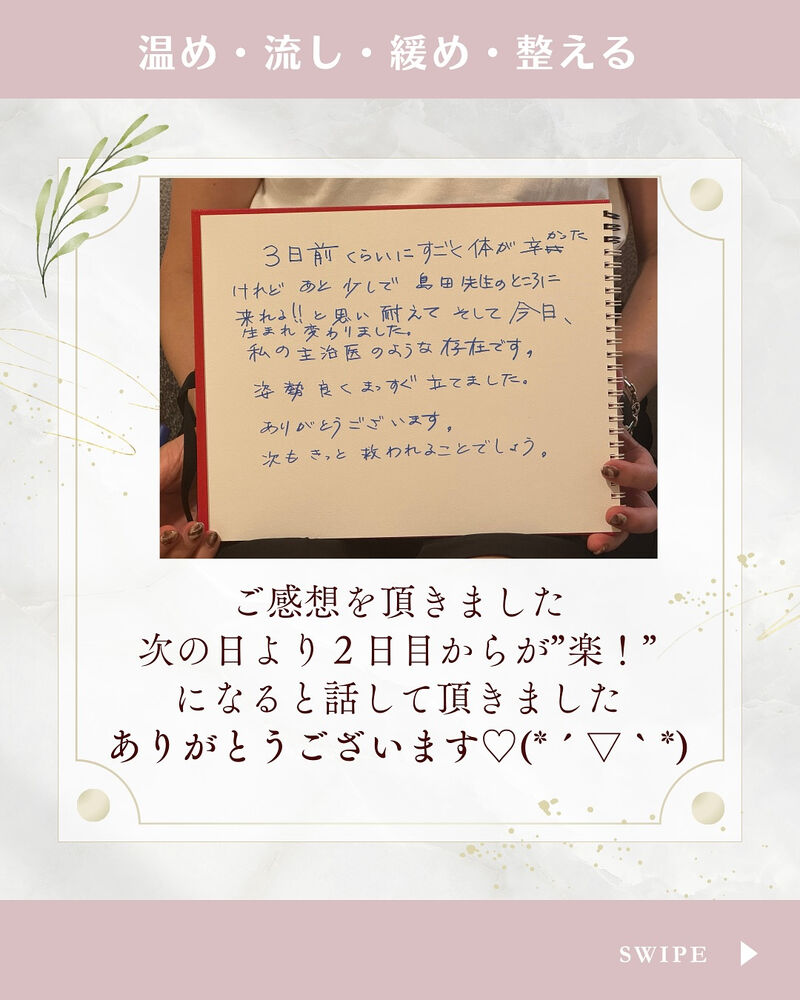 温め・流し・緩め・整える
3日前くらいにすごく体が辛かった
けれど あと少しで 島田先生のところに
来れる!!と思い 耐えて そして 今日、
生まれ変わりました。
私の主治医のような存在です。
姿勢良くまっすぐ立てました。
ありがとうございます。
次もきっと救われることでしょう。
ご感想を頂きました
次の日より２日目からが”楽！”
になると話して頂きました
ありがとうございます♡(*´▽｀*)
SWIPE